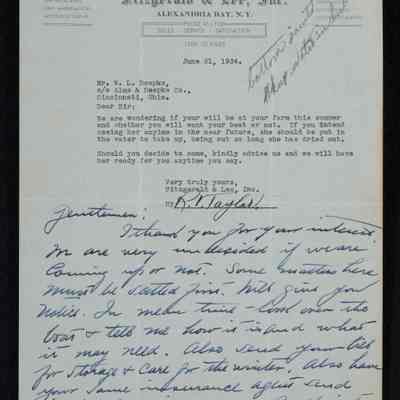 Fitzgerald & Lee, Inc.
ALEXANDRIA BAY, N.Y.
SALES SERVICE SATISFACTION
June 21, 1934.
bottom paint
Mr. W. L. Doepke,
c/o Alms & Doepke Co.,
Cincinnati, Ohio.
Dear Sir:
We are wondering if your will be at your farm this summer
and whether you will want your boat or not. If you intend
using her anyime in the near future, she should be put in
the water to take up, being out so long she has dried out.
Should you decide to come, kindly advise us and we will have
her ready for you anytime you say.
Very truly yours,
Fitzgerald & Lee, Inc.
By
Gentlemen:
I thank you for your interest
We are very undecided if we are
coming up or not. Some matters here
must be settled first. Will give you
notice. In mean time look over the
boat & tell me how it is and what
it may need. Also send your bill
for storage & care for the winter. Also have
your same insurance agent send